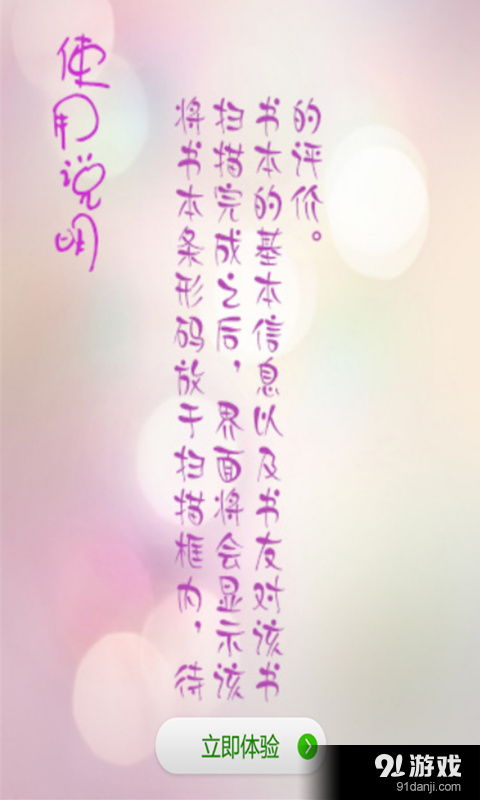 使用说明
将书本条形码放于扫描框内，待
扫描完成之后，界面将会显示该
书本的基本信息以及书友对该书
的评价。
立即体验
91游戏
91danji.com